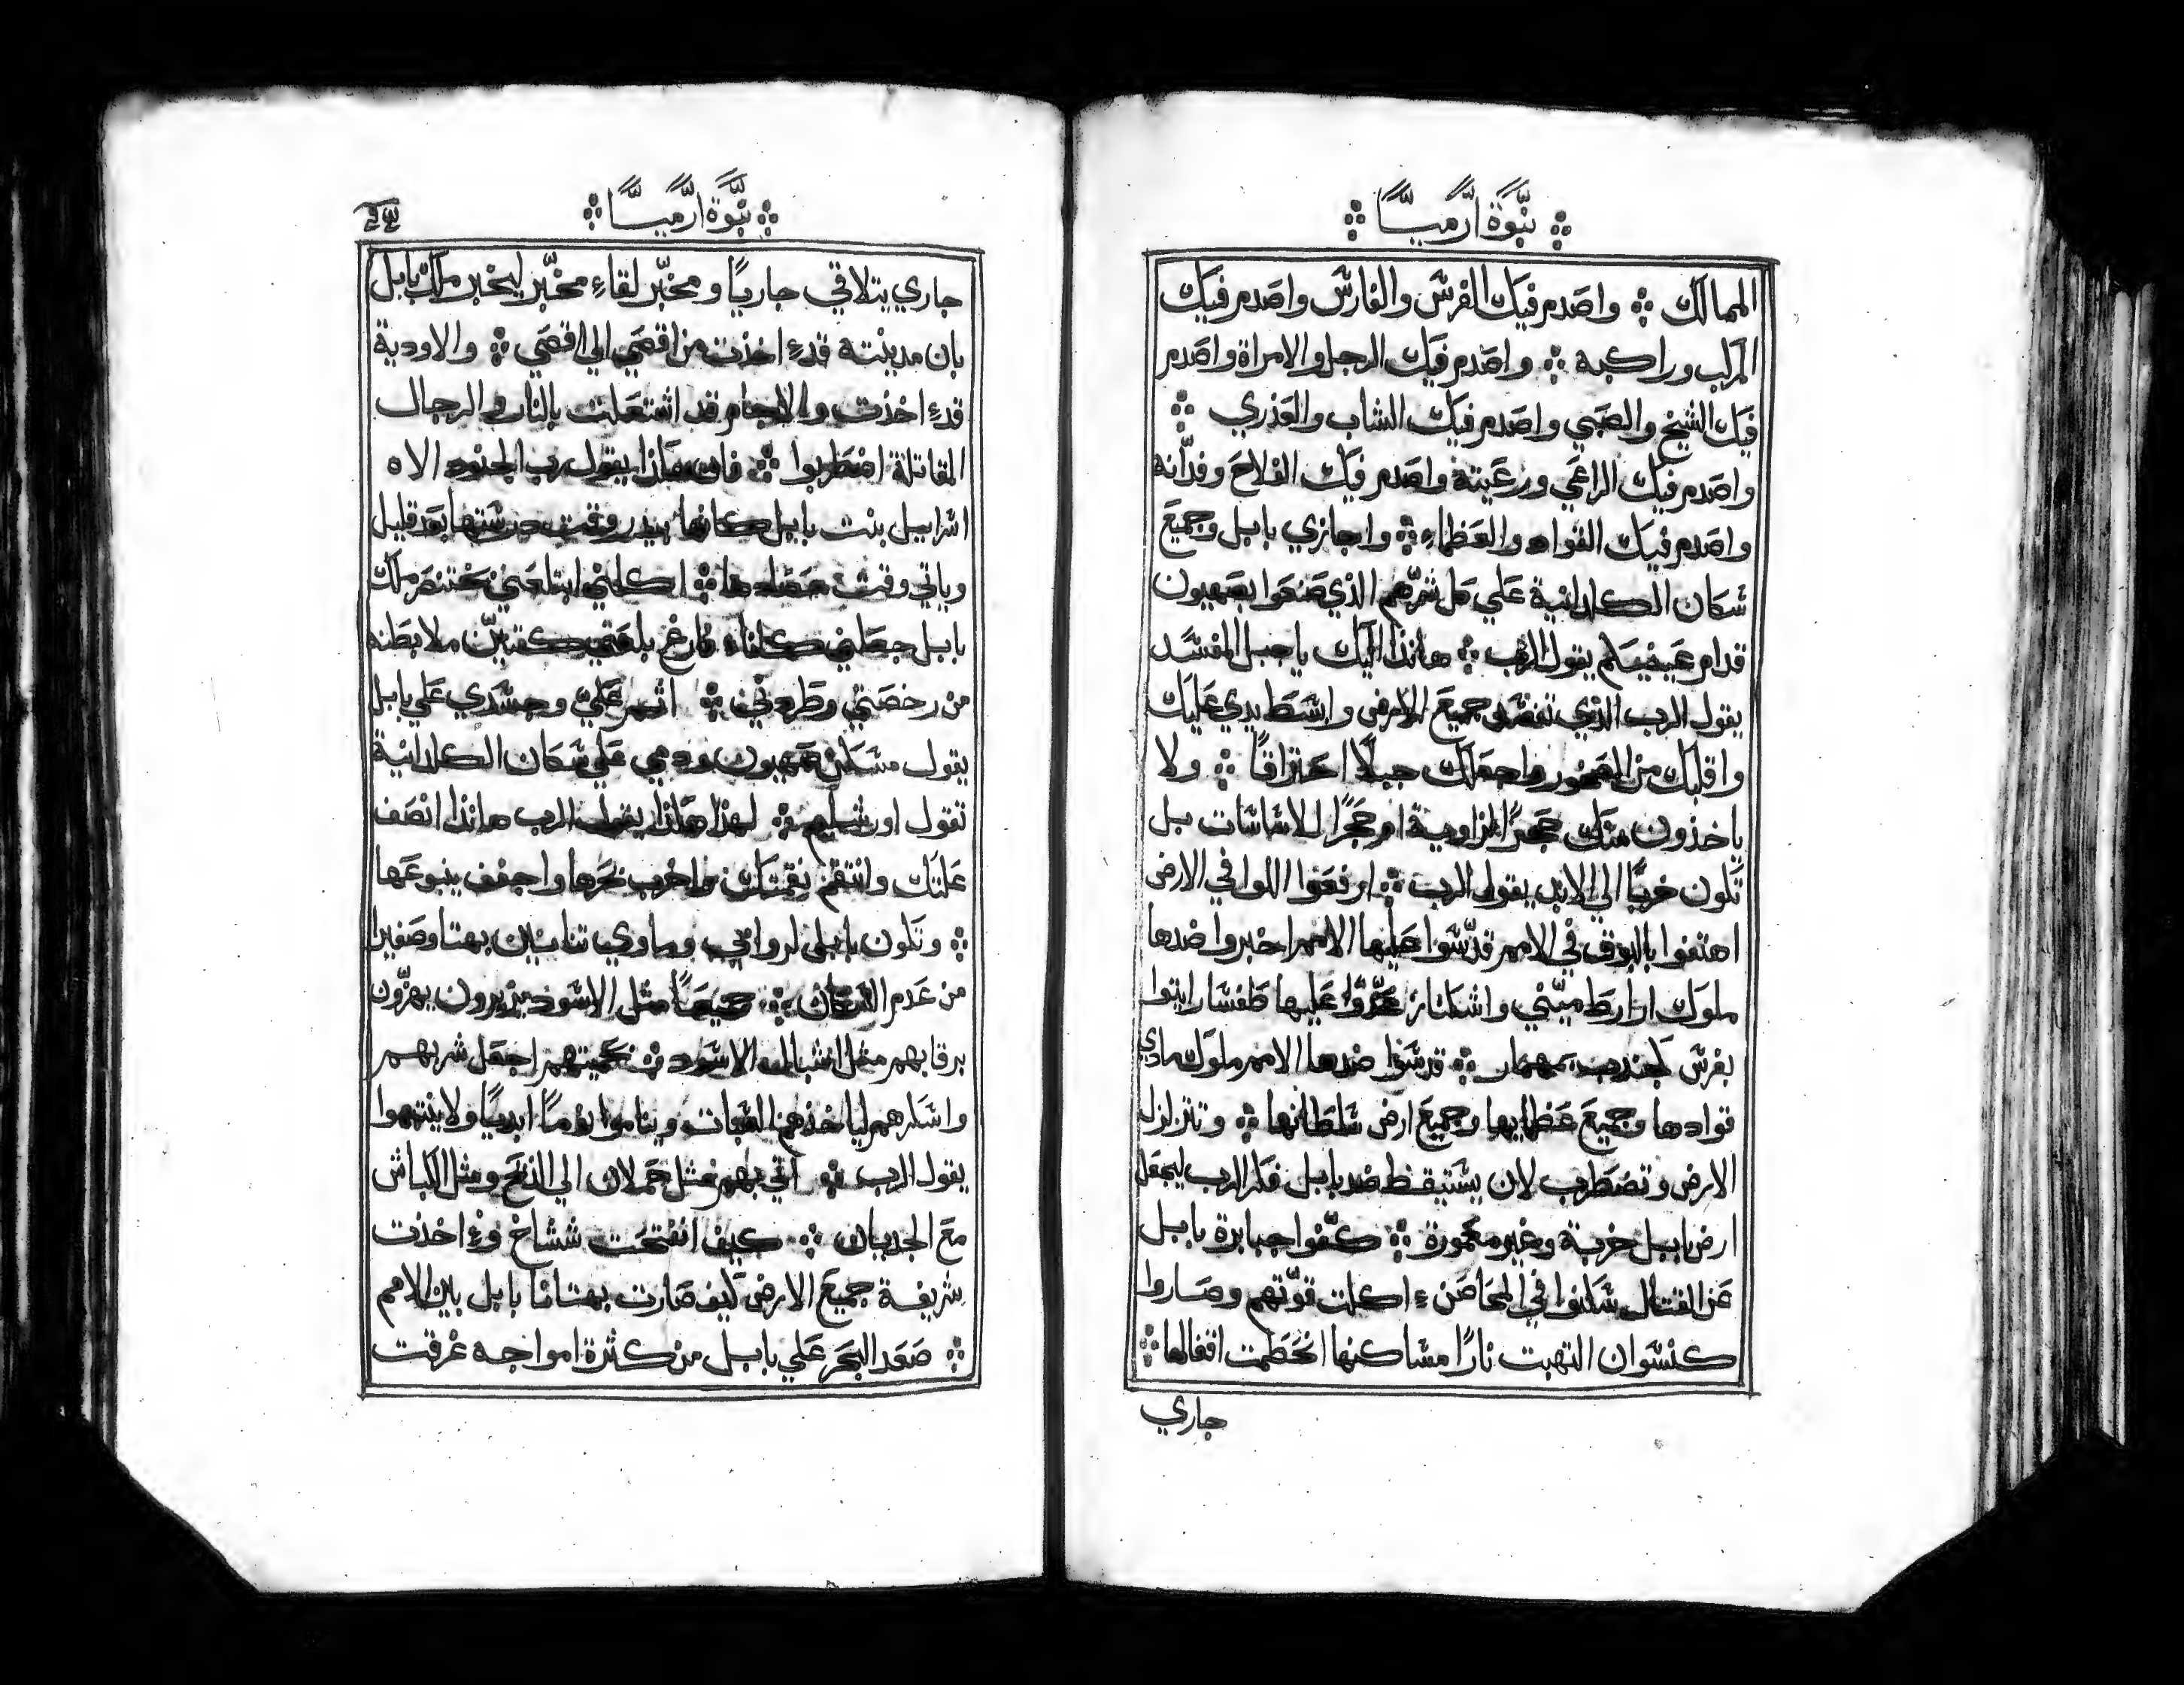 نبوة ارميا
الممالك ۞ واصدم فيك الفرش والفارش واصدم فيك
المركب وراكبه ۞ واصدم فيك الرجل والامراة واصدم
فيك الشيخ والصبي واصدم فيك الشاب والعذري ۞
واصدم فيك الراعي ورعيته واصدم فيك الفلاح وفدّانه
واصدم فيك القواد والعظماء ۞ واجازي بابل وجميع
شكان الكلدانية علي كل شرّهم الذي صنعوا بصهيون
قدام عينيكم يقول الرب ۞ هانذا اليك يا جبل المفشد
يقول الرب الذي تفشد جميع الارض وابشط يدي عليك
واقلبك من الصخور واجعلك جبلًا احتراقًا ۞ ولا
ياخذون منك حجرًا لزاوية او حجرًا للاشاشات بل
تكون خربًا الي الابد يقول الرب ۞ ارفعوا اللوا في الارض
اهتفوا بالبوق في الامم قدّشوا عليها الامم اخبروا ضدها
ملوك اراراط ميّني واشكناز عدّوا عليها طفشار ايتوا
بفرش كجندب بمهماز ۞ قدشوا ضدها الامم ملوك مادي
قوادها وجميع عظايها وجميع ارض شلطانها ۞ وتتزلزل
الارض وتضطرب لان يشتيقظ ضد بابل فكر الرب ليجعل
ارض بابل خربة وغير معمورة ۞ كفّوا جبابرة بابل
عن القتال شكنوا في المحاصن ء اكلت قوّتهم وصاروا
كنشوان التهبت نارًا مشاكنها انحطمت اقفالها ۞
جاري
نبوة ارميا
جاري يتلاقي جاريًا ومخبّر لقاء مخبّر ليخبر ملك بابل
بان مدينته قدء اخذت من اقصي الي اقصي ۞ والاودية
قدء اخذت والاجام قد اشتعلت بالنار والرجال
المقاتلة اضطربوا ۞ فان هكذا يقول رب الجنود الاه
اشراييل بنت بابل كانها بيدر وقت درشتها بعد قليل
وياتي وقت حصادها ۞ اكلني ابتلعني بختنصر ملك
بابل جعلني كاناء فارغ بلعني كتنّين ملا بطنه
من رخصتي وطردني ۞ اثم علي وجشدي علي بابل
يقول مشكن صهيون ودمي علي شكان الكلدانية
تقول اورشليم ۞ لهذا هكذا يقول الرب هانذا انصف
علتك وانتقم نقمتك واخرب بحرها واجفف ينبوعها
۞ وتكون بابل لروابي وماوي تنانين بهتا وصفيرا
من عدم الشكان ۞ جميعًا مثل الاشود يزيرون يهزّون
برقابهم مثل اشبال الاشود ۞ بحميتهم اجعل شربهم
واشكرهم لياخذهم الشبات ويناموا نومًا ابديًا ولا ينتبهوا
يقول الرب ۞ اتي بهم مثل حملان الي الذبح ومثل الكباش
مع الجديان ۞ كيف انفتحت ششاخ وء اخذت
شريفة جميع الارض كيف صارت بهتانا بابل بين الامم
۞ صعد البحر علي بابل من كثرة امواجه غرقت